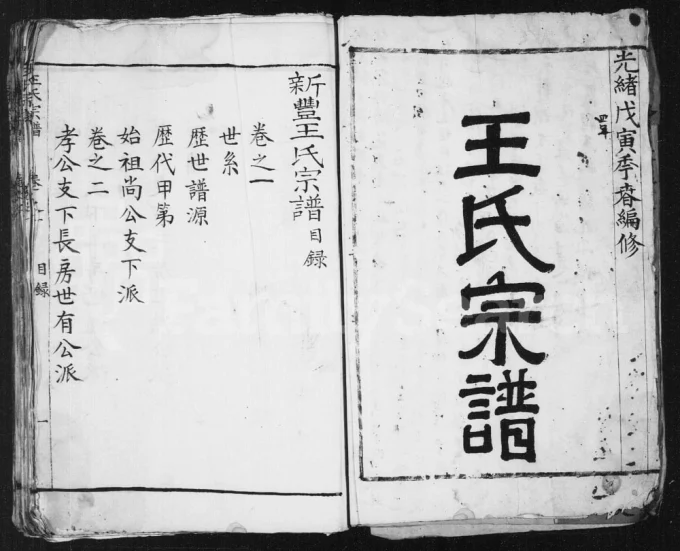 光緒戊寅季春編修
四年
王氏宗譜
新豐王氏宗譜目錄
卷之一
世系
歷世譜源
歷代甲第
始祖尚公支下派
卷之二
孝公支下長房世有公派
王氏宗譜
目錄
一